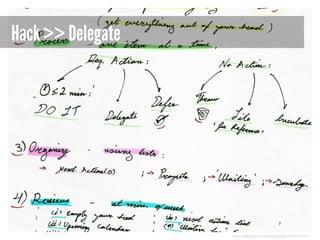 (get everything out of your head)
Hack >> Delegate
2) Process - one item at a time.
Req. Action: No Action:
① ≤ 2 min: Defer Throw File Incubate
DO IT Delegate 'for Reference'
3) Organize - using lists:
→ Next Action(s) ; → Projects ; → 'Waiting' ; → Someday
4) Review - at min. 1/week.
(i) empty your head (iv) next action list
(ii) Upcoming Calendar (v) 'Waiting for'